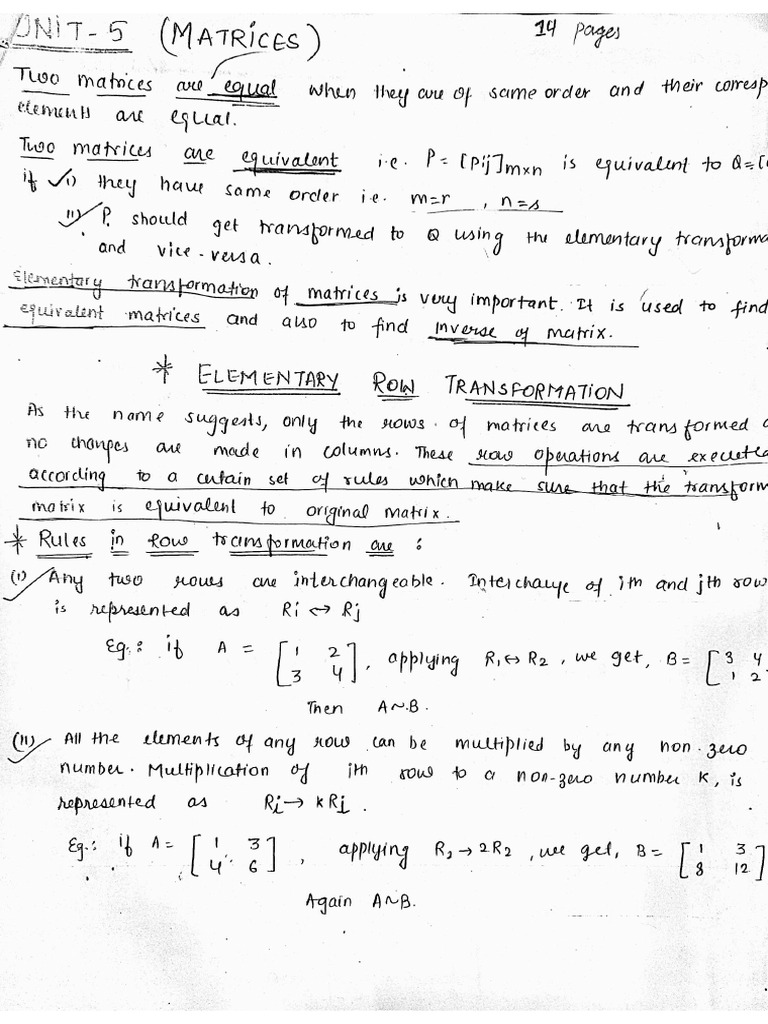 UNIT-5 (MATRICES) 14 pages
Two matrices are equal when they are of same order and their corresp
elements are equal.
Two matrices are equivalent i.e. P = [Pij]m×n is equivalent to Q = [
if i) they have same order i.e. m=r , n=s
ii) P. should get transformed to Q using the elementary transforma
and vice-versa.
Elementary transformation of matrices is very important. It is used to find
equivalent matrices and also to find inverse of matrix.
* ELEMENTARY ROW TRANSFORMATION
As the name suggests, only the rows of matrices are transformed
no changes are made in columns. These row operations are execute
according to a certain set of rules which make sure that the transform
matrix is equivalent to original matrix.
* Rules in Row transformation are :
(i) Any two rows are interchangeable. Interchange of ith and jth row
is represented as Ri ↔ Rj
Eg.: if A = [1 2
3 4], applying R1↔R2, we get, B = [3 4
1 2
Then A~B.
(ii) All the elements of any row can be multiplied by any non-zero
number. Multiplication of ith row to a non-zero number K, is
represented as Ri → kRi.
Eg.: if A = [1 3
4 6], applying R2→2R2, we get, B = [1 3
8 12]
Again A~B.